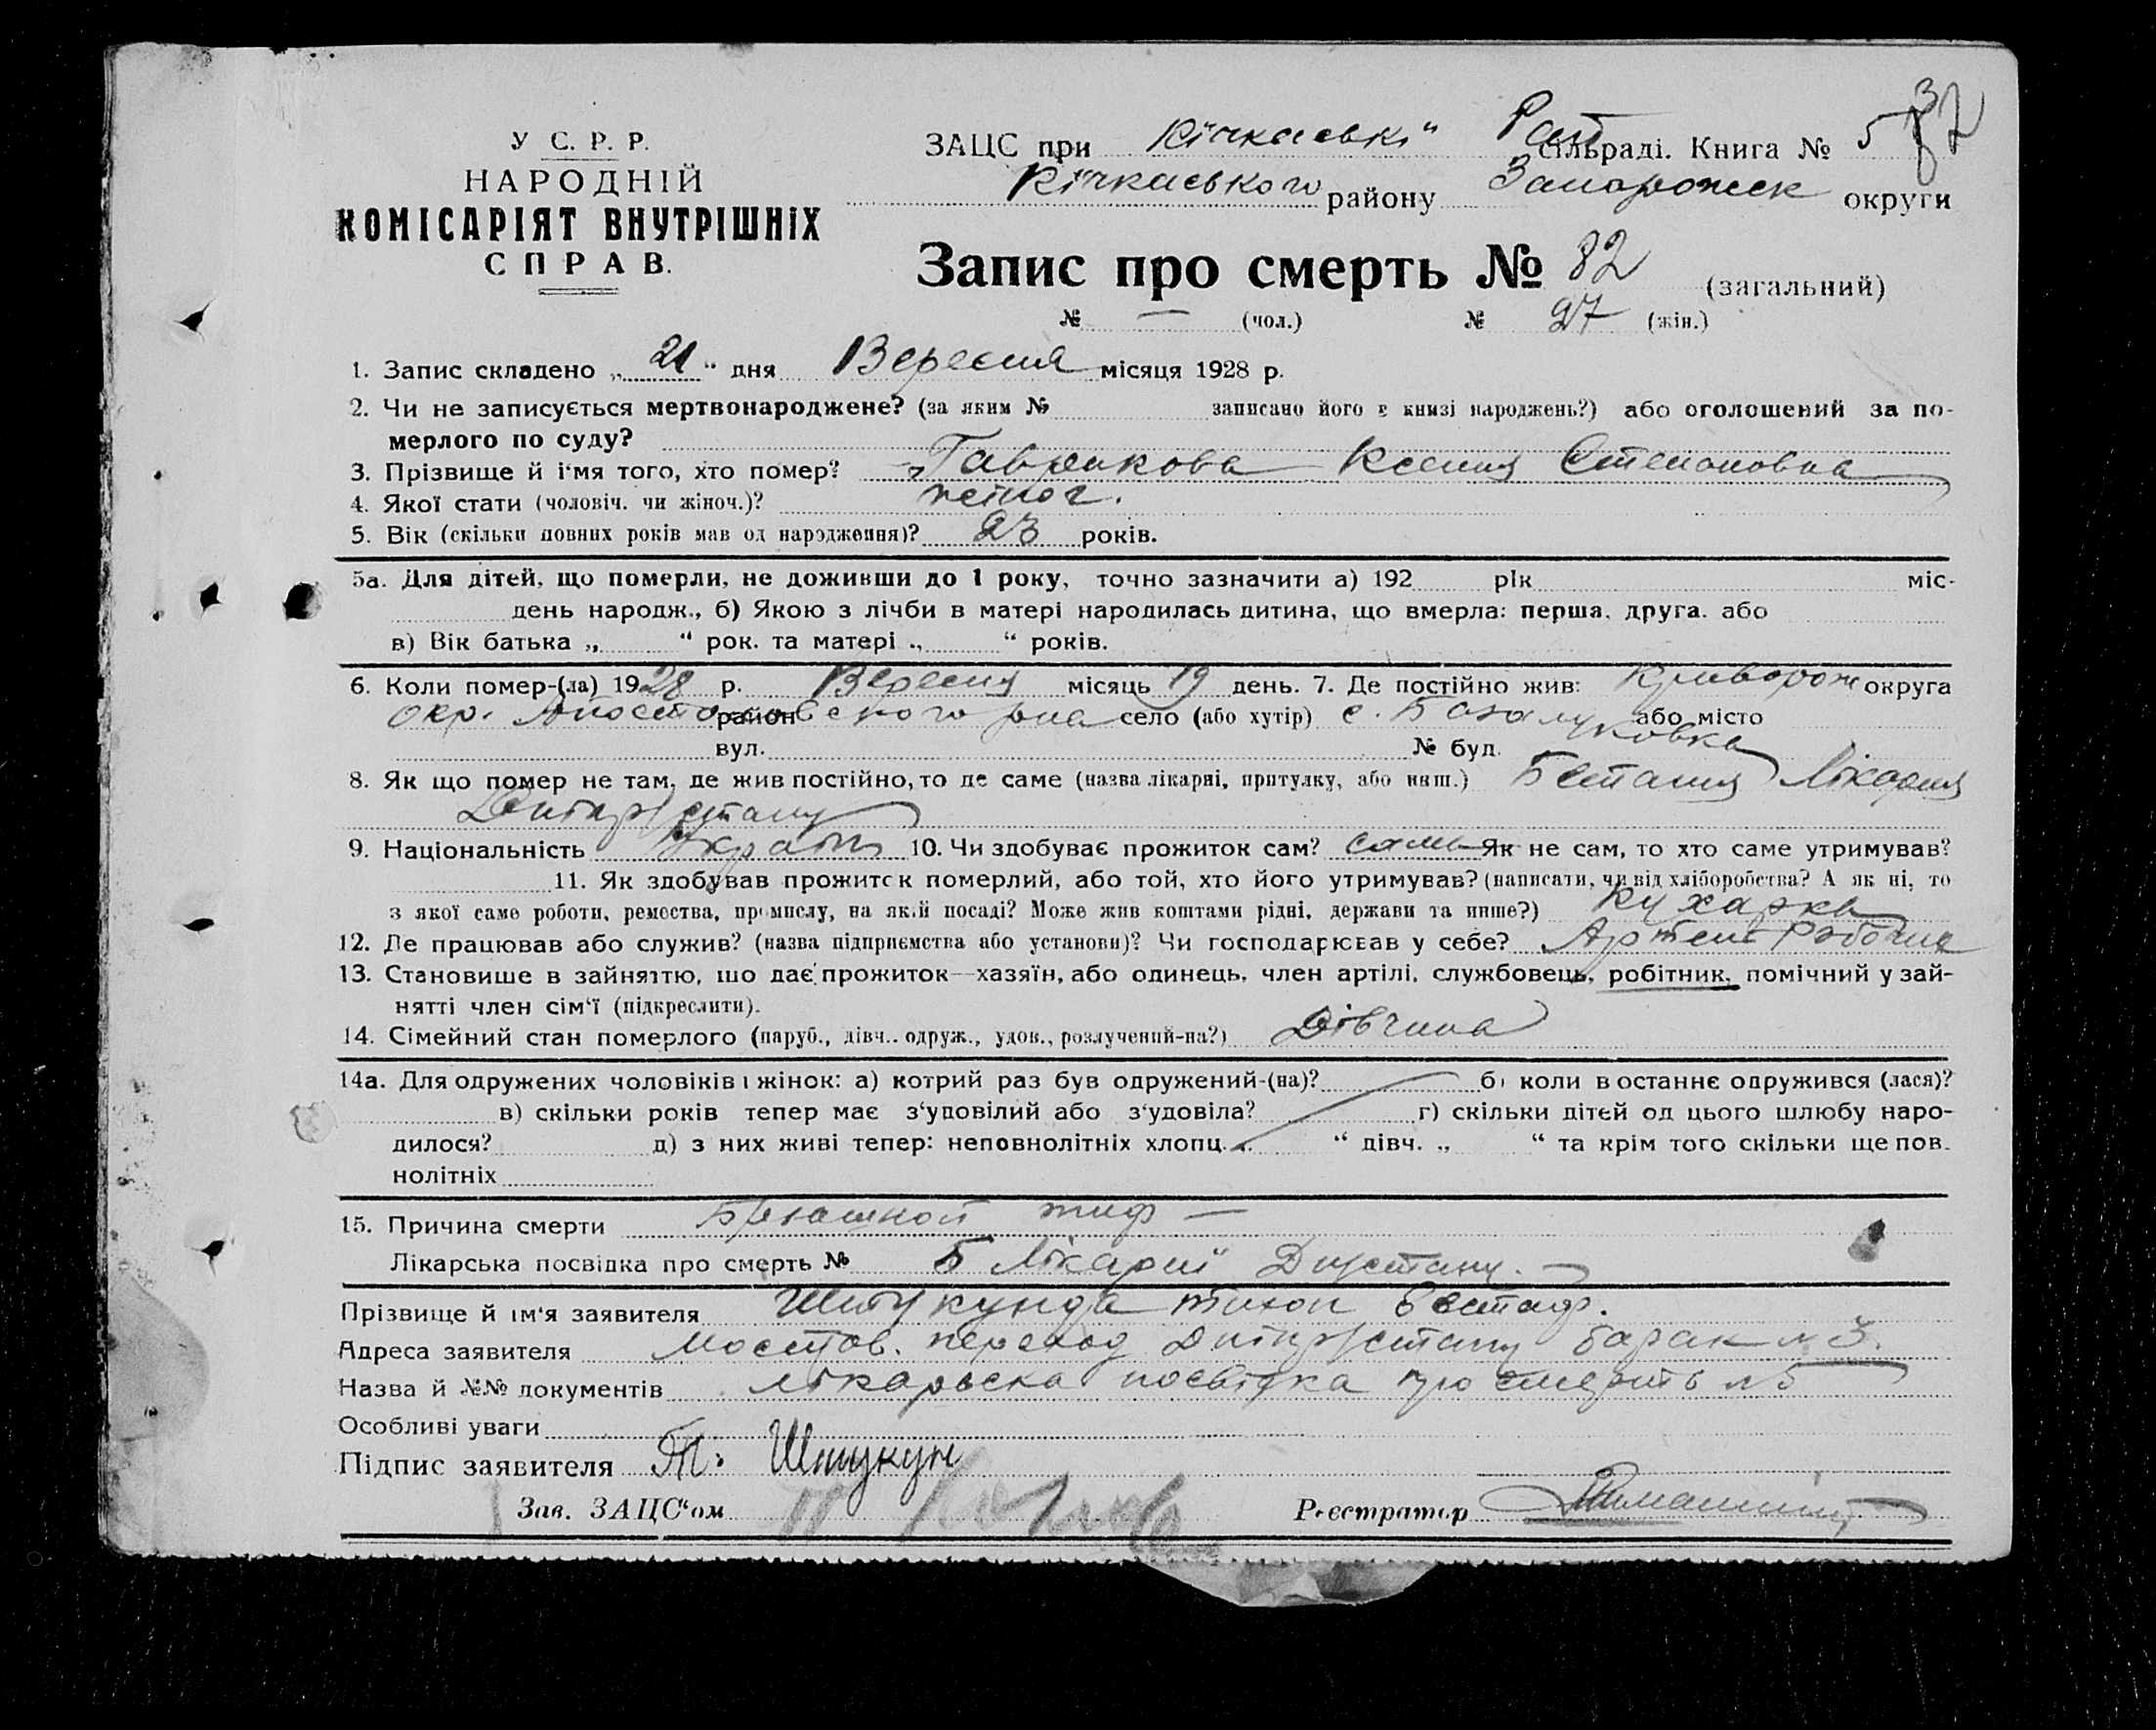 У С. Р. Р.
НАРОДНІЙ
КОМІСАРІЯТ ВНУТРІШНІХ
СПРАВ.
ЗАЦС при Кічкаські Рай сільраді. Книга № 5
Кічкаського району Запорожск округи
Запис про смерть № 82 (загальний)
№ — (чол.) № 27 (жін.)
1. Запис складено „21“ дня Вересня місяця 1928 р.
2. Чи не записується мертвонароджене? (за яким № записано його в книзі народжень?) або оголошений за по-
мерлого по суду?
3. Прізвище й і'мя того, хто помер? Гаврикова Ксения Степановна
4. Якої стати (чоловіч. чи жіноч.)? жіноч.
5. Вік (скільки повних років мав од народження)? 23 років.
5а. Для дітей, що померли, не доживши до 1 року, точно зазначити а) 192 рік міс-
день народж., б) Якою з лічби в матері народилась дитина, що вмерла: перша, друга, або
в) Вік батька „ “ рок. та матері „ “ років.
6. Коли помер-(ла) 1928 р. Вересня місяць 19 день. 7. Де постійно жив: Криворож округа
окр. Апостоловского р-на район село (або хутір) с. Базалуковка або місто
вул. № буд.
8. Як що помер не там, де жив постійно, то де саме (назва лікарні, притулку, або инш.) Лікарня
9. Національність 10. Чи здобуває прожиток сам? сама Як не сам, то хто саме утримував?
11. Як здобував прожиток померлий, або той, хто його утримував? (написати, чи від хліборобства? А як ні, то
з якої саме роботи, ремества, промислу, на якій посаді? Може жив коштами рідні, держави та инше?) Кухарка
12. Де працював або служив? (назва підприємства або установи)? Чи господарював у себе? Артель
13. Становище в зайняттю, що дає прожиток—хазяїн, або одинець, член артілі, службовець, робітник, помічний у зай-
нятті член сім'ї (підкреслити).
14. Сімейний стан померлого (паруб., дівч.. одруж., удов., розлучений-на?) Дівчина
14а. Для одружених чоловіків і жінок: а) котрий раз був одружений-(на)? б) коли в останнє одружився (лася)?
в) скільки років тепер має з'уповілий або з'удовіла? г) скільки дітей од цього шлюбу наро-
дилося? д) з них живі тепер: неповнолітніх хлопц. “ дівч. „ “ та крім того скільки ще пов-
нолітніх
15. Причина смерти Брюшной тиф —
Лікарська посвідка про смерть № 5 Лікарні
Прізвище й ім'я заявителя Тихон Евстаф.
Адреса заявителя Мостов. переход барак № 3.
Назва й №№ документів лікарьска посвідка про смерть № 5
Особливі уваги
Підпис заявителя Т. Штукун
Зав. ЗАЦС'ом Реєстратор